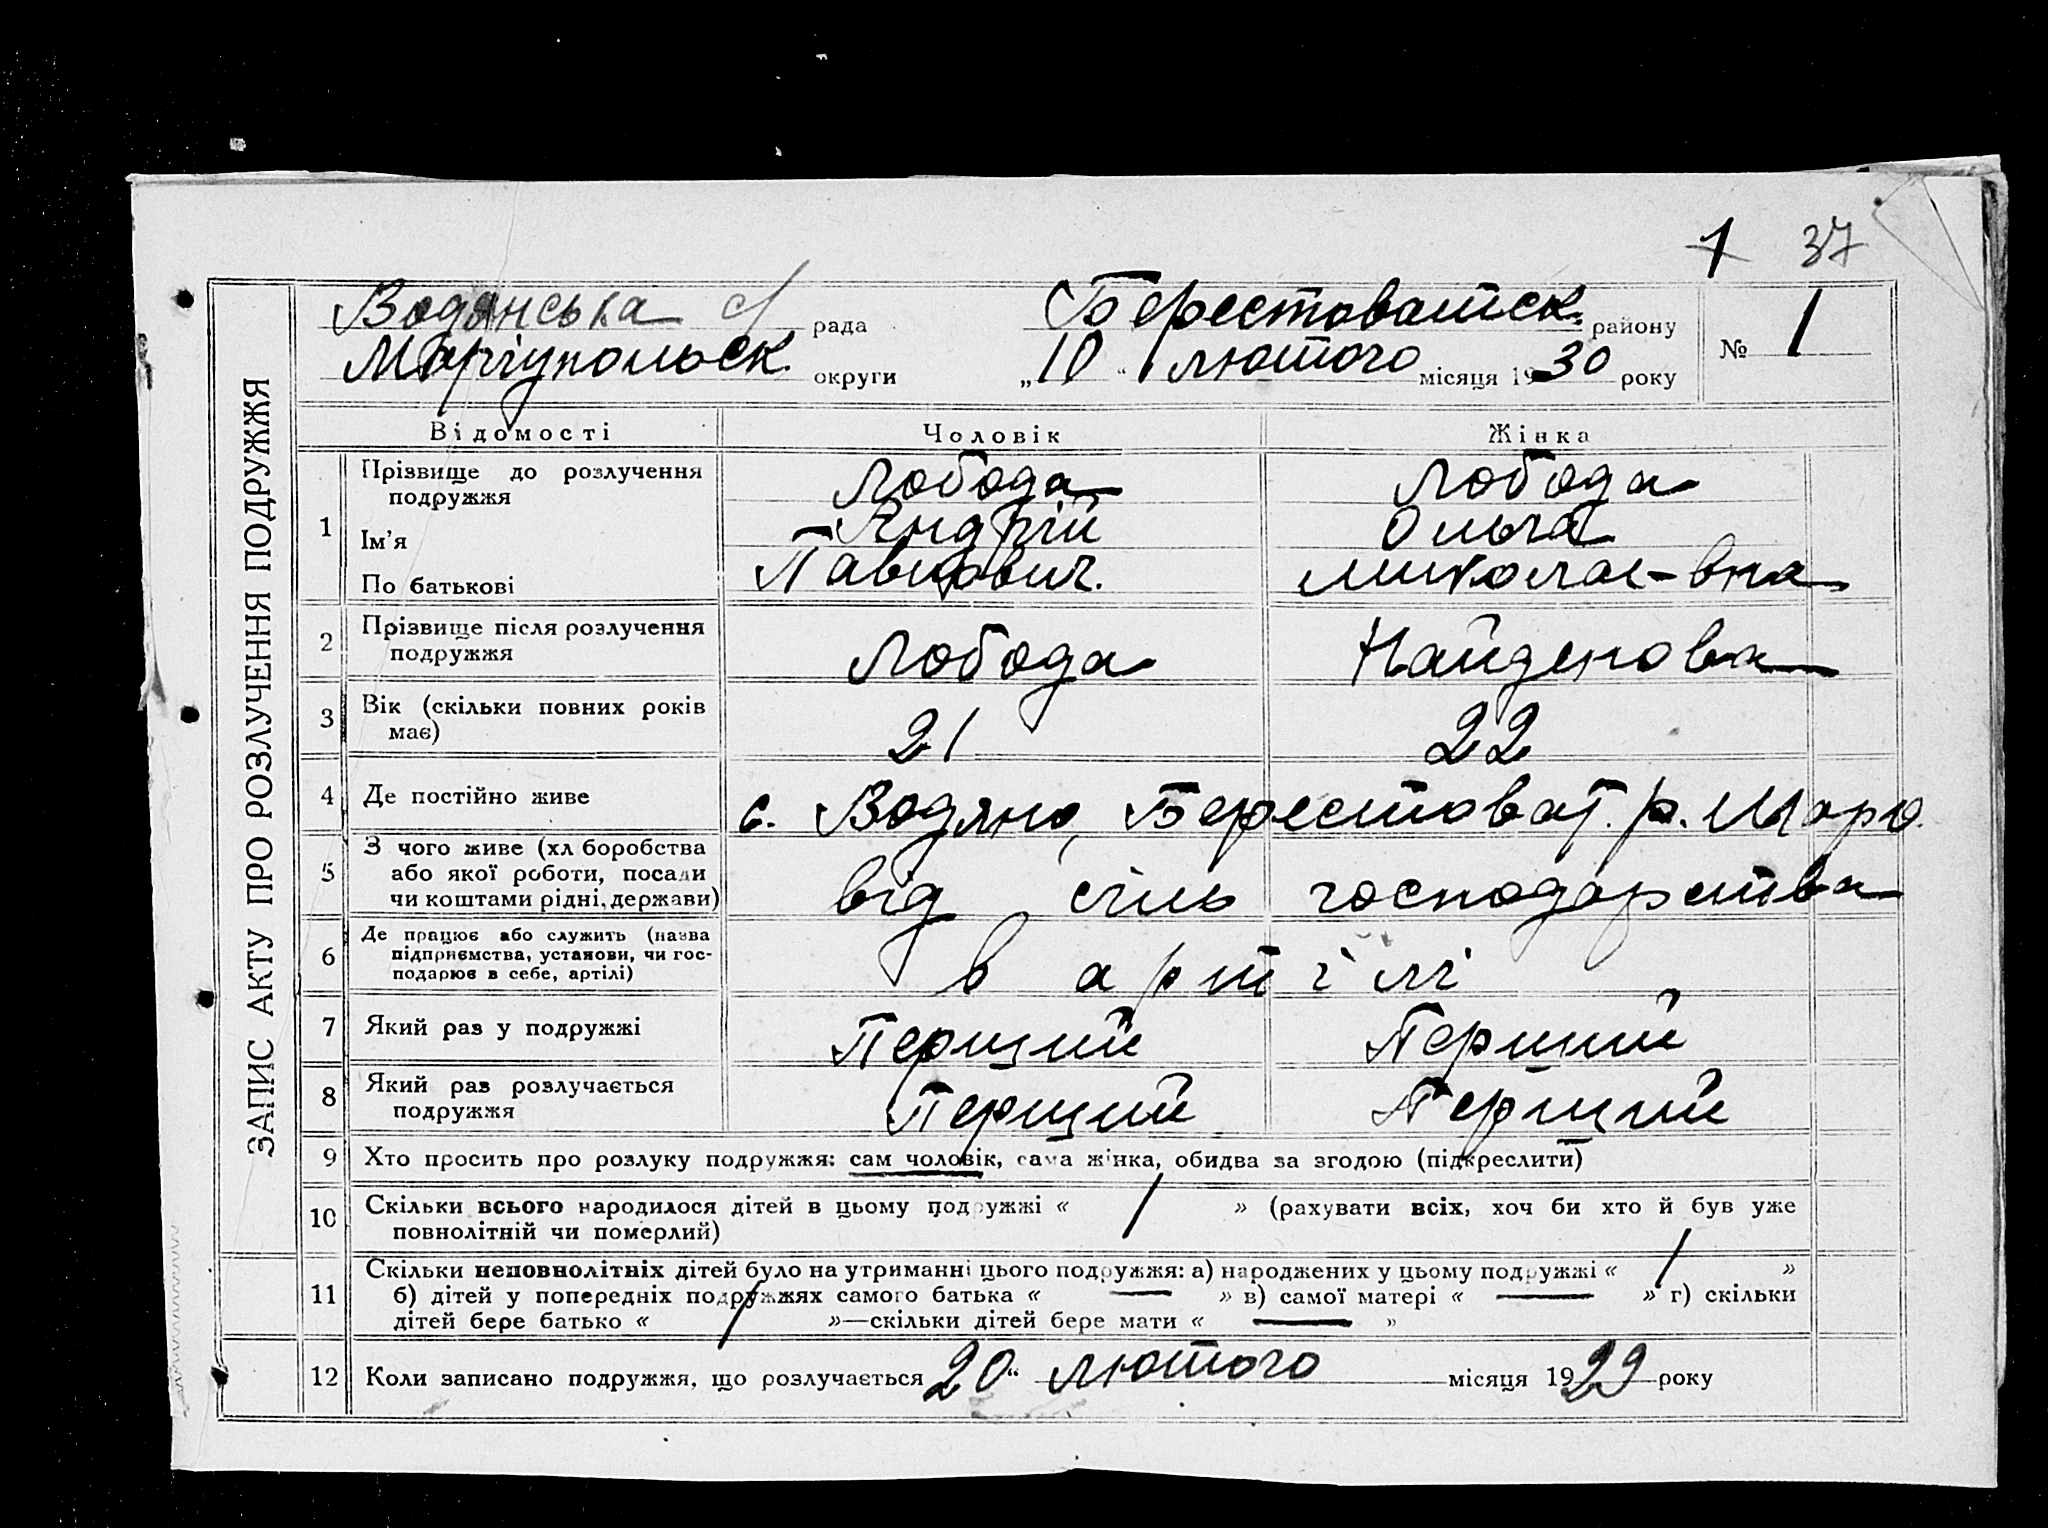 1 37
ЗАПИС АКТУ ПРО РОЗЛУЧЕННЯ ПОДРУЖЖЯ
Водянська с/ рада Берестоватск. району
№ 1
Маріупольск. округи „10“ лютого місяця 1930 року
Відомості Чоловік Жінка
1 Прізвище до розлучення подружжя Лобода Лобода
Ім’я Андрій Ольга
По батькові Павлович. Миколає-вна
2 Прізвище після розлучення подружжя Лобода Найденова
3 Вік (скільки повних років має) 21 22
4 Де постійно живе с. Водяно, Берестоват. р. Марю.
5 З чого живе (хл боробства або якої роботи, посади чи коштами рідні, держави) від сіль господарства
6 Де працює або служить (назва підприємства, установи, чи господарює в себе, артілі) в артілі
7 Який раз у подружжі Перший Перший
8 Який раз розлучається подружжя Перший Перший
9 Хто просить про розлуку подружжя: сам чоловік, сама жінка, обидва за згодою (підкреслити)
10 Скільки всього народилося дітей в цьому подружжі « 1 » (рахувати всіх, хоч би хто й був уже
повнолітній чи померлий)
11 Скільки неповнолітніх дітей було на утриманні цього подружжя: а) народжених у цьому подружжі « 1 »
б) дітей у попередніх подружжях самого батька « — » в) самої матері « — » г) скільки
дітей бере батько « 1 »—скільки дітей бере мати « — »
12 Коли записано подружжя, що розлучається 20“ лютого місяця 1929 року